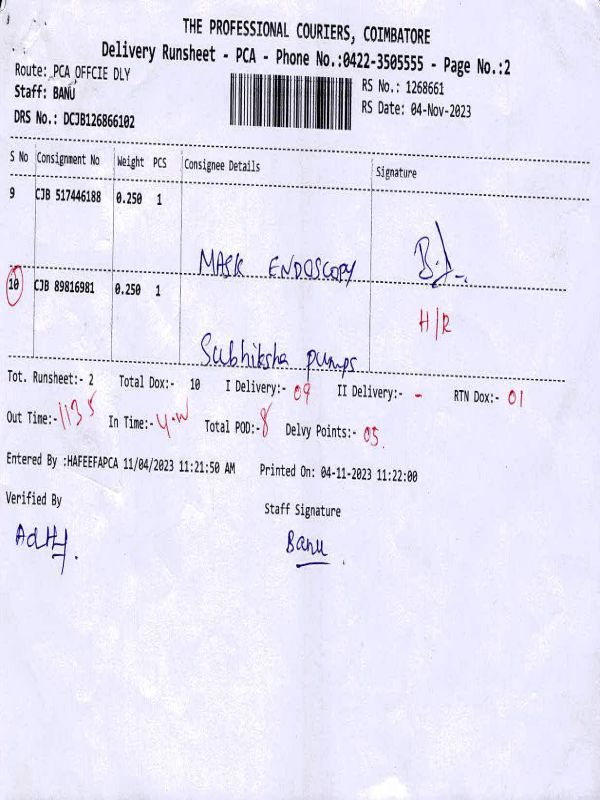 THE PROFESSIONAL COURIERS, COIMBATORE
Delivery Runsheet - PCA - Phone No.:0422-3505555 - Page No.:2
Route: PCA OFFCIE DLY
Staff: BANU
DRS No.: DCJB126866102
RS No.: 1268661
RS Date: 04-Nov-2023
S No Consignment No Weight PCS Consignee Details Signature
9 CJB 517446188 0.250 1
MASK ENDOSCOPY
10 CJB 89816981 0.250 1
H/R
Subhiksha pumps
Tot. Runsheet:- 2 Total Dox:- 10 I Delivery:- 09 II Delivery:- - RTN Dox:- 01
Out Time:- 1135 In Time:- Total POD:- 8 Delvy Points:- 05.
Entered By :HAFEEFAPCA 11/04/2023 11:21:50 AM Printed On: 04-11-2023 11:22:00
Verified By
Staff Signature
Banu